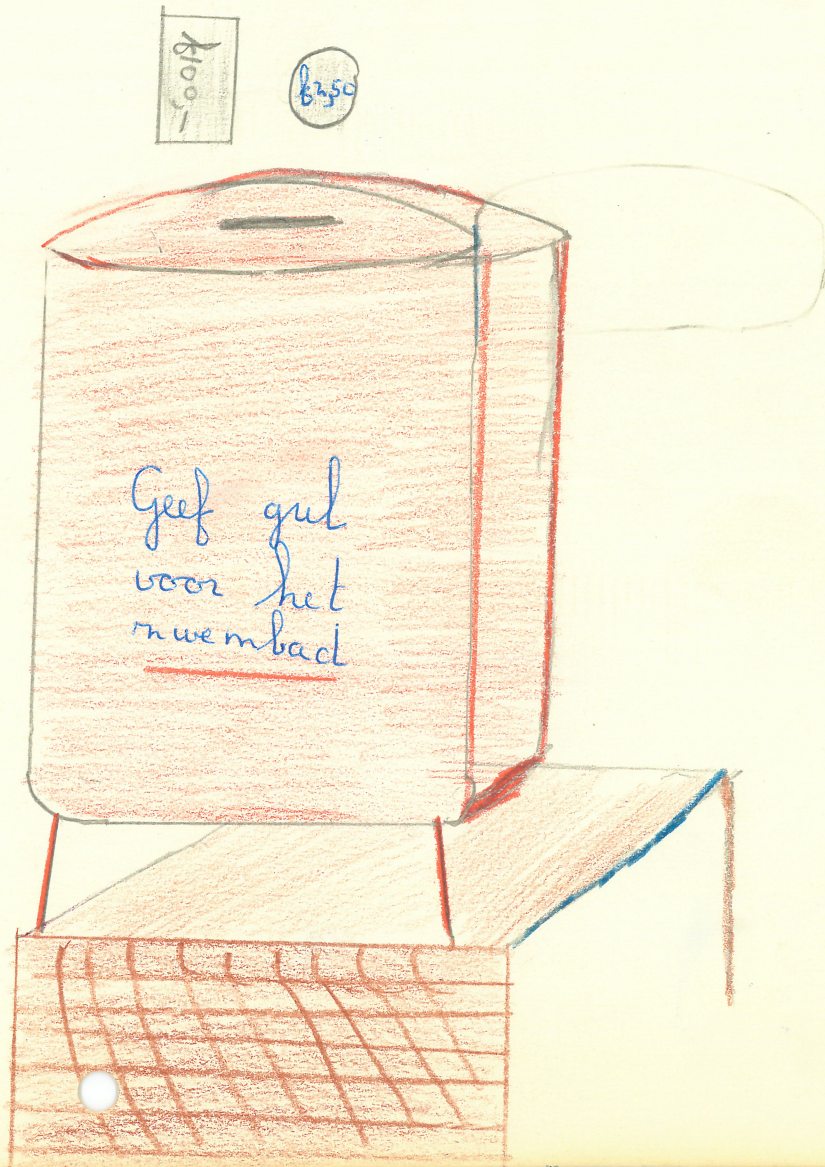 f100,-
f2,50
Geef gul
voor het
zwembad